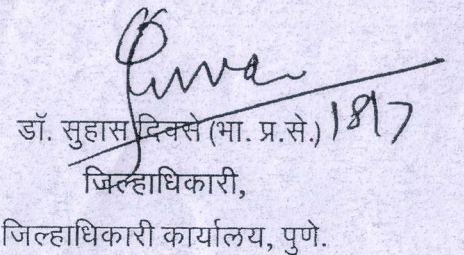 डॉ. सुहास दिवसे (भा. प्र.से.) 18/7
जिल्हाधिकारी,
जिल्हाधिकारी कार्यालय, पुणे.